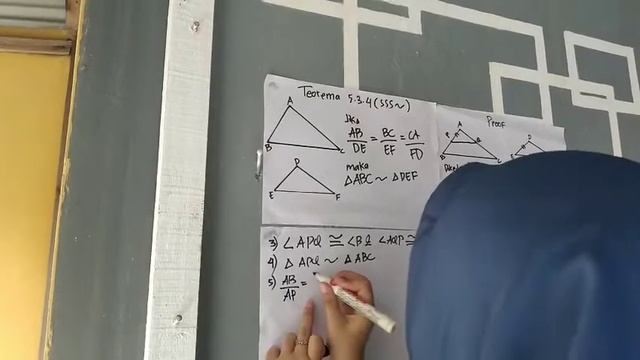 Teorema 5.3.4 (SSS~)
A
B
C
D
E
F
Jika
AB/DE = BC/EF = CA/FD
maka
△ABC ~ △DEF
Proof
A
P
Q
B
C
D
3) ∠APQ ≅ ∠B & ∠AQP ≅
4) △APQ ~ △ABC
5) AB/AP =